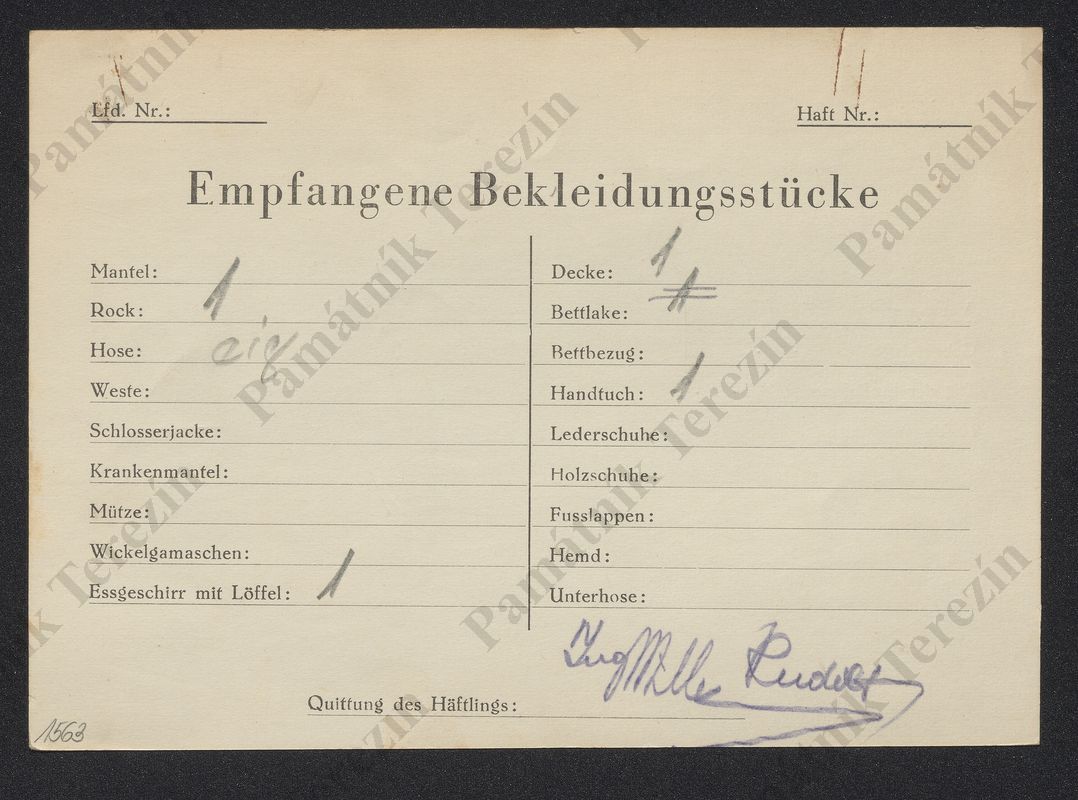 Lfd. Nr.:
Haft Nr.:
Empfangene Bekleidungsstücke
Mantel:
Rock: 1
Hose: eig
Weste:
Schlosserjacke:
Krankenmantel:
Mütze:
Wickelgamaschen:
Essgeschirr mit Löffel: 1
Decke: 1
Bettlake: 1
Bettbezug:
Handtuch: 1
Lederschuhe:
Holzschuhe:
Fusslappen:
Hemd:
Unterhose:
Quittung des Häftlings: Ing Rudolf
1563
Památník Terezín